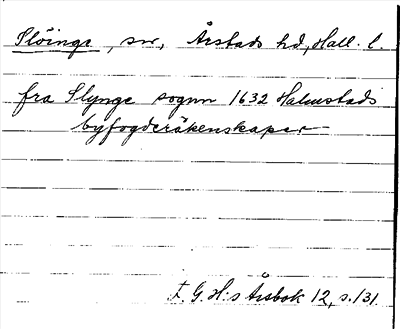 Slöinge, sn, Årstads hd, Hall. l.
fra Slynge sognn 1632 Halmstads
byfogderäkenskaper
F. G. H:s Årsbok 12, s. 131.